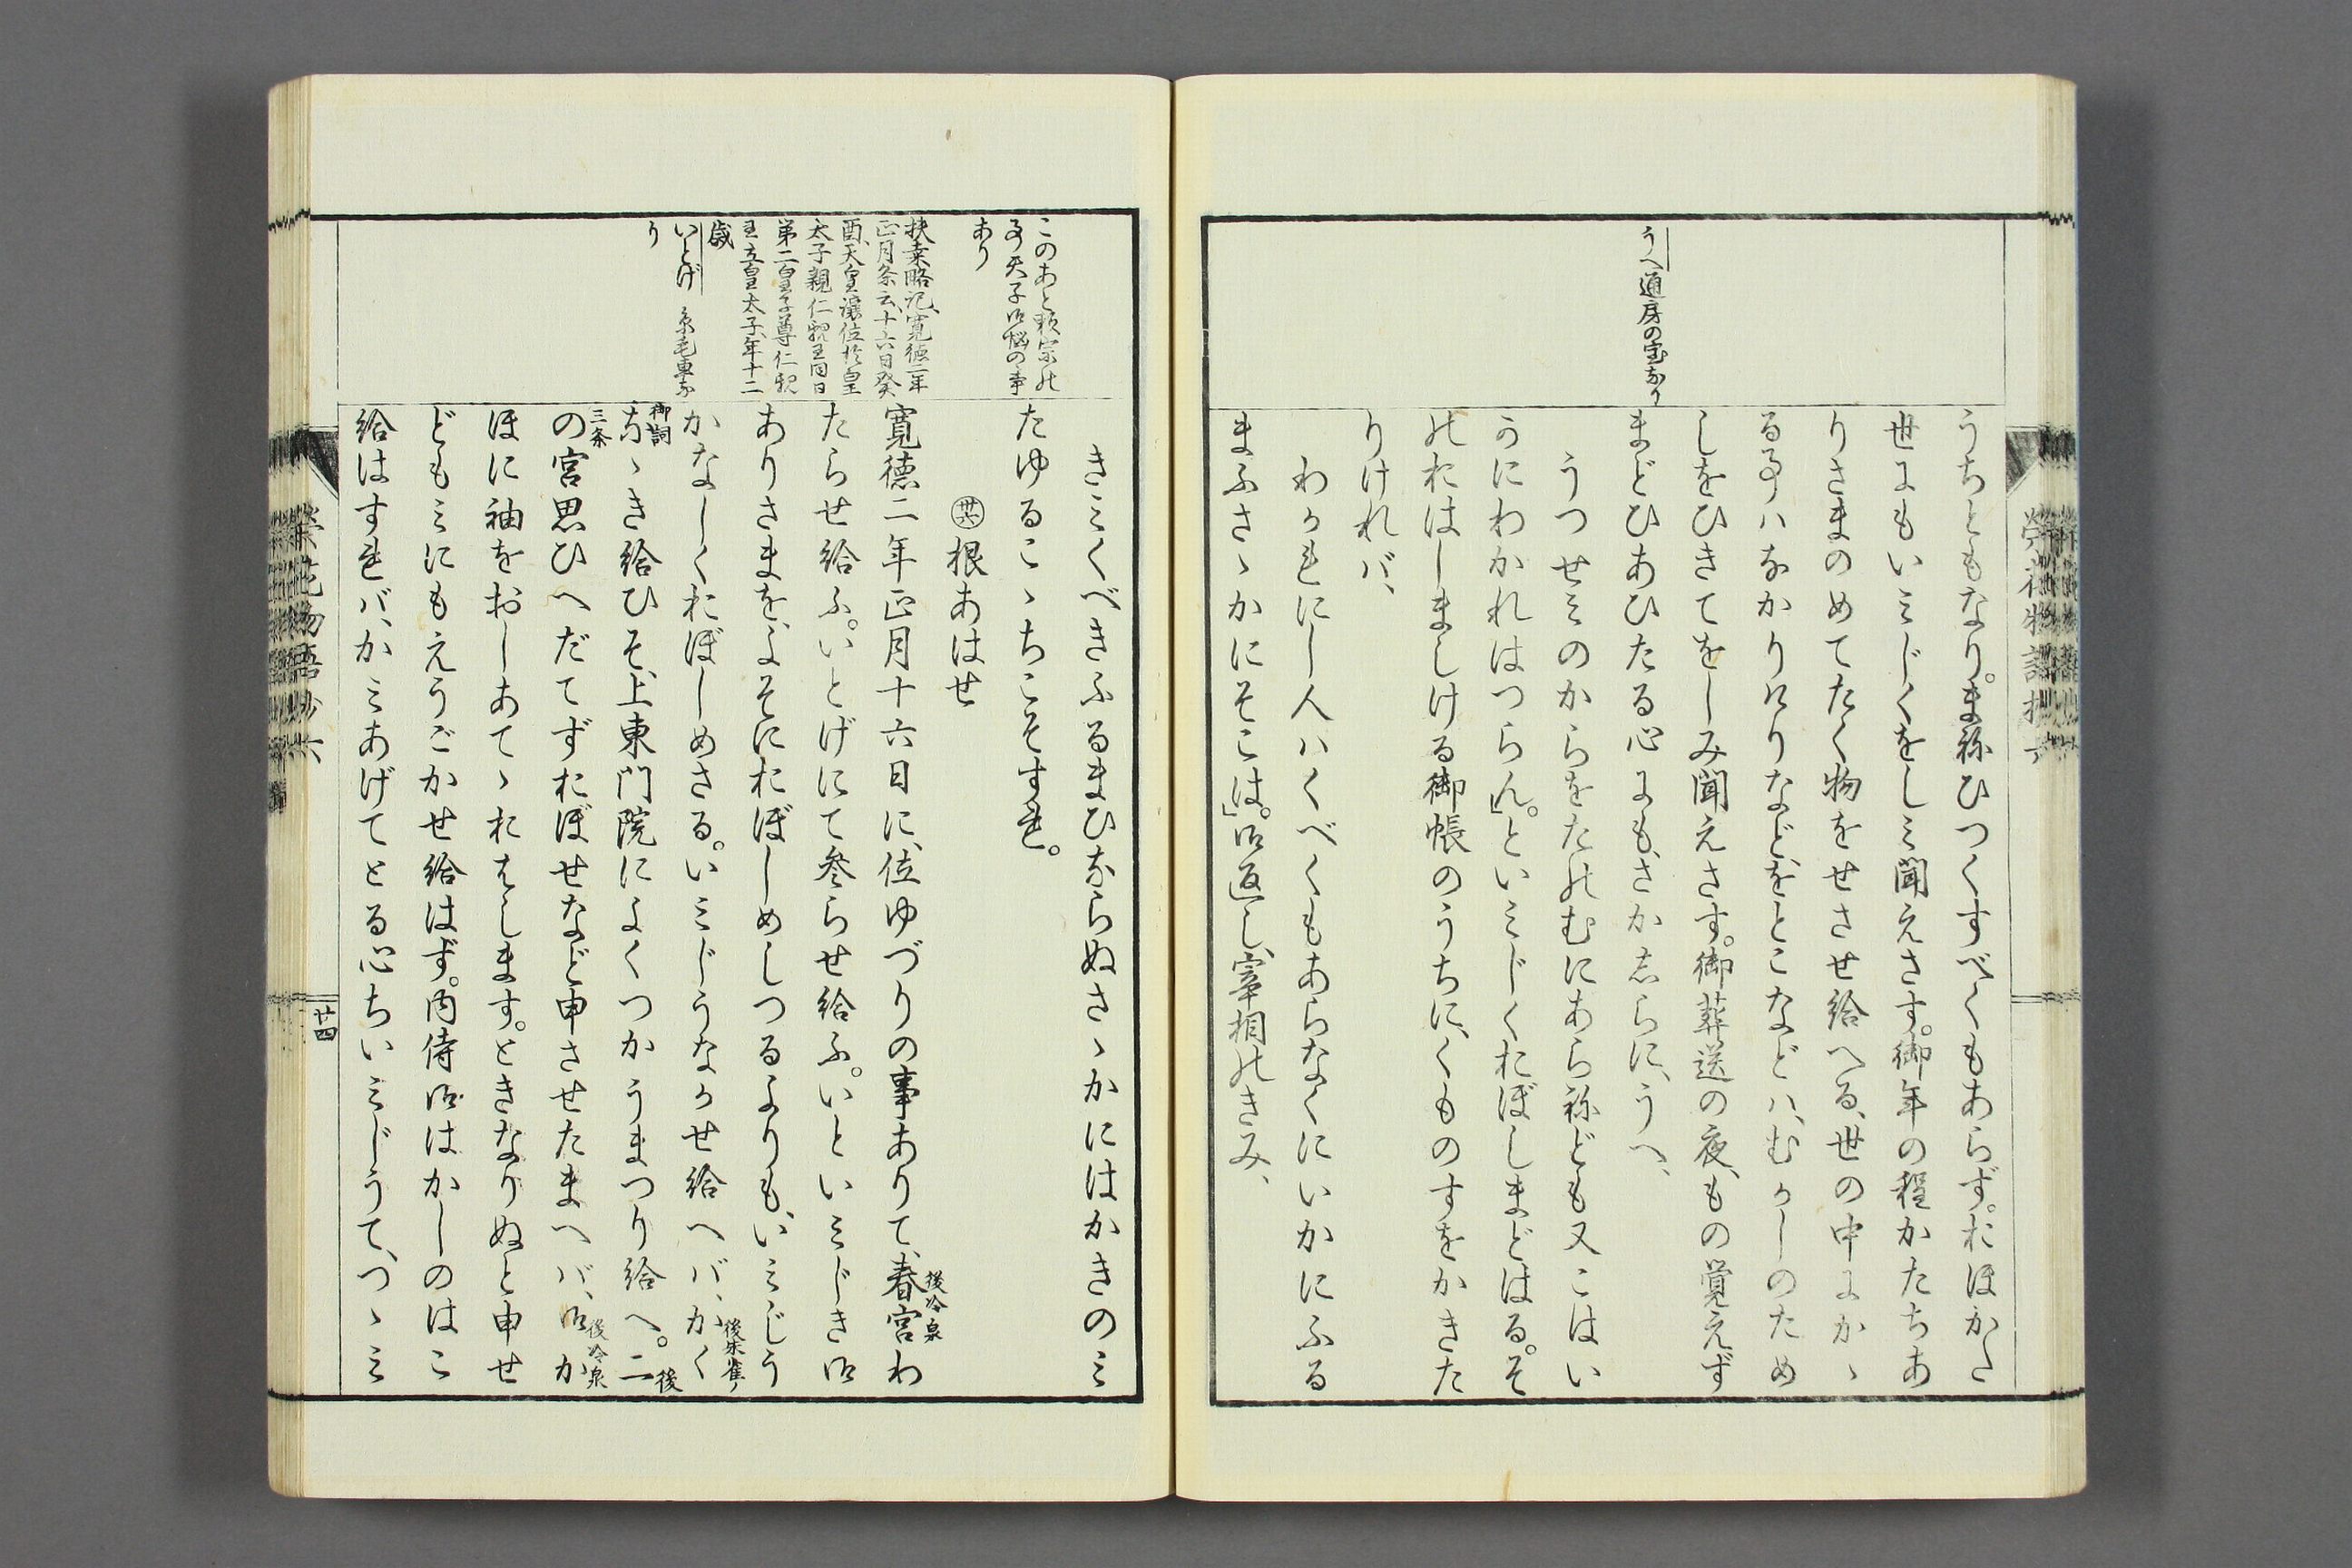 うへ 通房の室なり
うちともなり。まねひつくすべくもあらず。おほかた
世にもいミじくをしミ聞えさす。御年の程かたちあ
りさまのめてたく物をせさせ給へる、世の中にかゝ
る事ハなかりけりなど、をとこなどハ、むかしのため
しをひきてをしみ聞えさす。御葬送の夜、もの覚えず
まどひあひたる心にも、さか志らに、うへ、
うつせミのからをたのむにあらねども又こはい
かにわかれはつらん。」といミじくおぼしまどはる。そ
のおはしましける御帳のうちに、くものすをかきた
りけれバ、
わかれにし人ハくべくもあらなくにいかにふる
まふさゝかにそこは。」御返し、宰相のきみ、
このあと頼宗の
事天子御悩の事
あり
扶桑略記、寛徳二年
正月条云、十六日癸
酉、天皇譲位於皇
太子親仁親王同日
第二皇子尊仁親
王立皇太子、年十二
歳
いとげ 糸毛車な
り
きミくべきふるまひならぬさゝかにはかきのミ
たゆるこゝちこそすれ。
㊱根あはせ
寛徳二年正月十六日に、位ゆづりの事ありて、春宮わ
後冷泉
たらせ給ふ。いとげにて参らせ給ふ。いといミじき御
ありさまを、よそにおぼしめしつるよりも、いミじう
かなしくおぼしめさる。いミじうなかせ給へバ、かく
後朱雀ノ
御詞
なゝき給ひそ、上東門院によくつかうまつり給へ。二
後
三条
の宮思ひへだてずおぼせなど申させたまへバ、御か
後冷泉
ほに袖をおしあてゝおはします。ときなりぬと申せ
どもミにもえうごかせ給はず。内侍御はかしのはこ
給はすれバ、かミあげてとる心ちいミじうて、つゝミ
栄花物語抄 六
廿四